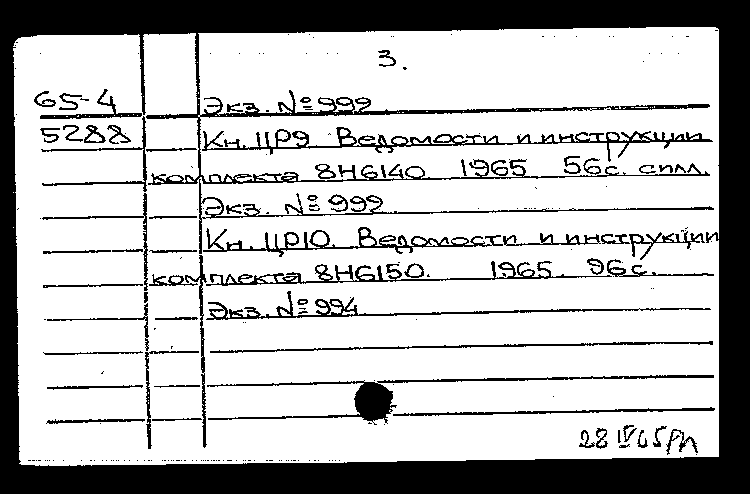 3.
65-4 Экз. № 999
5288 Кн. ЦР9 Ведомости и инструкции
комплекта 8Н6140 1965 56с. сплл.
Экз. № 999
Кн. ЦР10. Ведомости и инструкции
комплекта 8Н6150. 1965. 96с.
Экз. № 994
28 IV 65